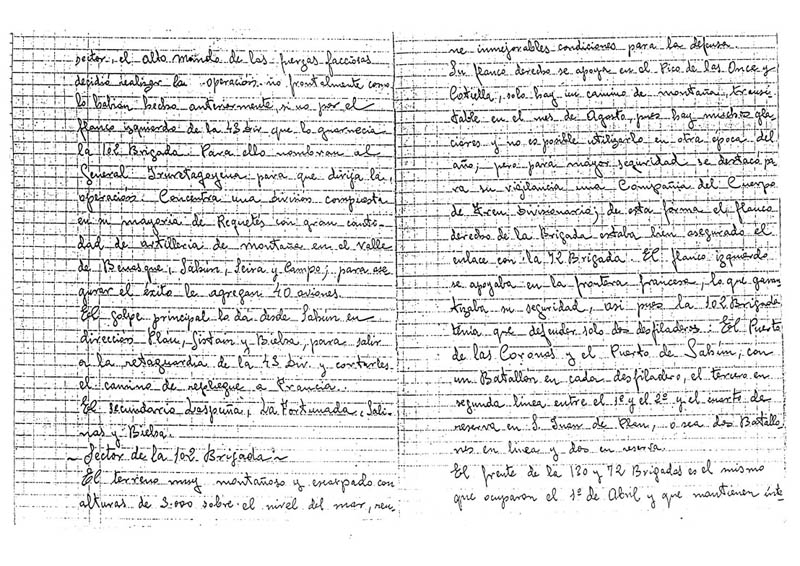 sector, el alto mando de las fuerzas facciosas
decidió realizar la operación no frontalmente como
lo habian hecho anteriormente, si no por el
flanco izquierdo de la 43 Div. que lo guarnecia
la 102 Brigada. Para ello nombran al
General Iruretagoyena para que dirija la
operación. Concentra una division compuesta
en su mayoria de Requetés con gran canti-
dad de artilleria de montaña en el valle
de Benasque, Sahún, Seira y Campo; para ase
gurar el éxito le agregan 40 aviones.
El golpe principal lo dá desde Sahún en
dirección Plan, Gistain y Bielsa, para salir
a la retaguardia de la 43 Div. y cortarles
el camino de repliegue a Francia.
El secundario Laspuña, La Fortunada, Sali-
nas y Bielsa.
~ Sector de la 102 Brigada ~
El terreno muy montañoso y escarpado con
alturas de 3.000 sobre el nivel del mar, reu
ne inmejorables condiciones para la defensa.
Su flanco derecho se apoya en el Pico de las Once y
Cotiella, solo hay un camino de montaña, transi
table en el mes de Agosto, pues hay muchos gla
ciares y no es posible utilizarlo en otra época del
año; pero para mayor seguridad se destacó pa
ra su vigilancia una Compañia del Cuerpo
de Tren Divisionario; de esta forma el flanco
derecho de la Brigada estaba bien asegurado el
enlace con la 72 Brigada. El flanco izquierdo
se apoyaba en la frontera francesa, lo que garan
tizaba su seguridad, asi pues la 102 Brigada
tenia que defender solo dos desfiladeros: El Puerto
de las Coronas y el Puerto de Sahún; con
un Batallon en cada desfiladero, el tercero en
segunda linea entre el 1º y el 2º y el cuarto de
reserva en S. Juan de Plan, o sea dos Batallo
nes en linea y dos en reserva.
El frente de la 130 y 72 Brigadas es el mismo
que ocuparon el 1º de Abril y que mantienen